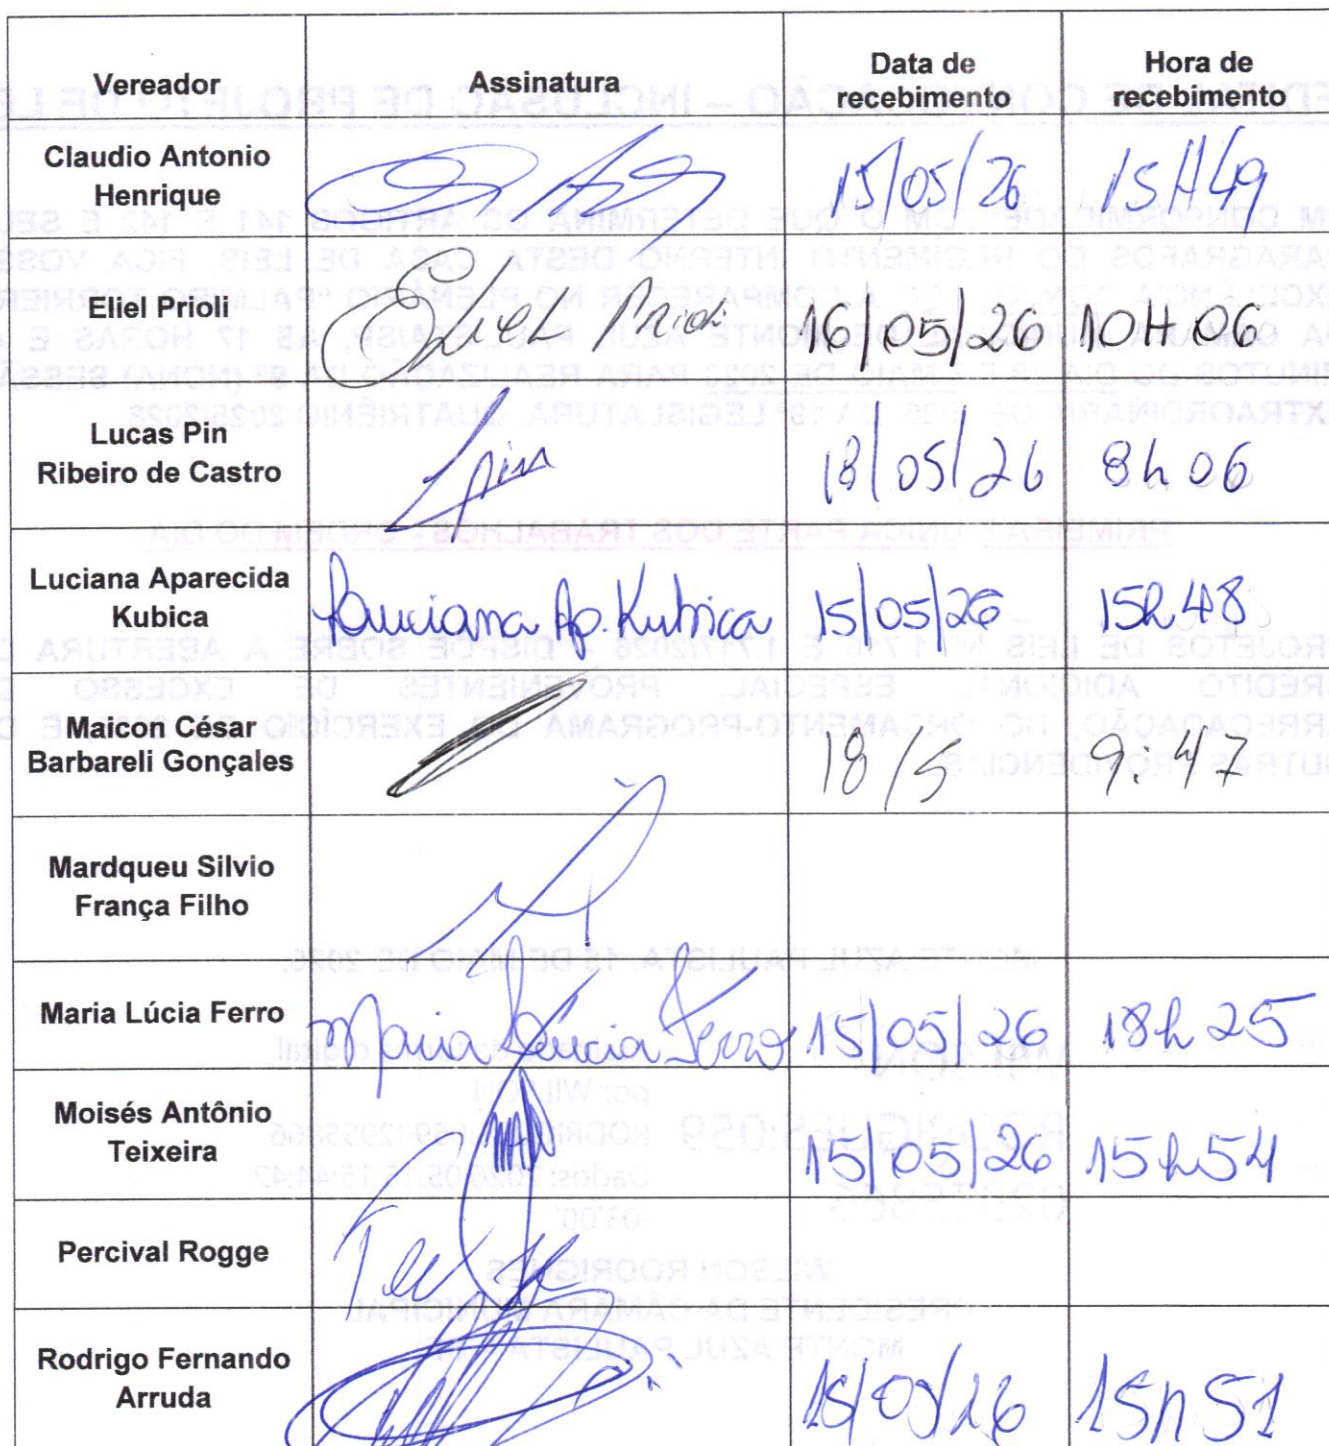 Vereador Assinatura Data de recebimento Hora de recebimento
Claudio Antonio Henrique 15/05/26 15H49
Eliel Prioli Eliel Prioli 16/05/26 10H06
Lucas Pin Ribeiro de Castro Lpin 18/05/26 8h06
Luciana Aparecida Kubica Luciana Ap. Kubica 15/05/26 15h48
Maicon César Barbareli Gonçales 18/5 9:47
Mardqueu Silvio França Filho
Maria Lúcia Ferro Maria Lúcia Ferro 15/05/26 18h25
Moisés Antônio Teixeira 15/05/26 15h54
Percival Rogge
Rodrigo Fernando Arruda 15/05/26 15h51